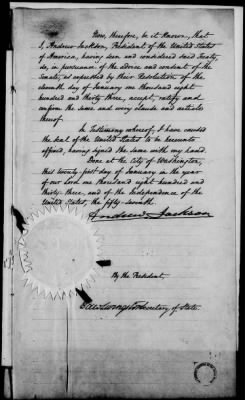 Now, therefore, be it known, that
I, Andrew Jackson, President of the United States
of America, having seen and considered said Treaty,
do, in pursuance of the advice and consent of the
Senate, as expressed by their Resolution of the
eleventh day of January one thousand eight
hundred and thirty three, accept, ratify and
confirm the same and every clause and article
thereof.
In Testimony whereof, I have caused
the seal of the United States to be hereunto
affixed, having signed the same with my hand.
Done at the City of Washington,
this twenty-first day of January in the year
of our Lord one thousand eight hundred and
thirty-three, and of the Independence of the
United States, the fifty-seventh.
Andrew Jackson
By the President,
Edw Livingston Secretary of State.